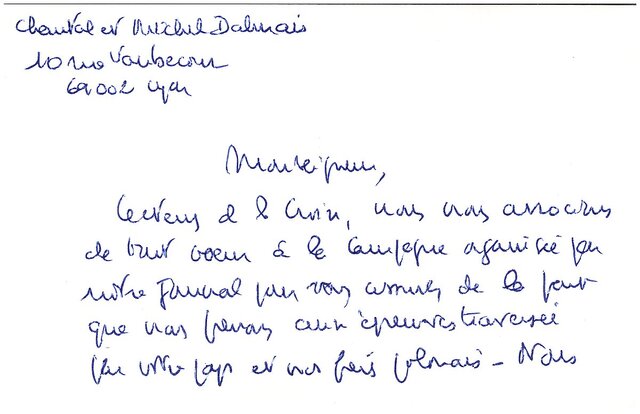 Chantal et Michel Dalmais
10 rue Vaubecour
69002 Lyon
Monseigneur,
Lecteurs de la Croix, nous nous associons
de tout coeur à la campagne organisée par
notre journal pour vous assurer de la part
que nous prenons aux épreuves traversées
par votre pays et nos frères polonais - Nous